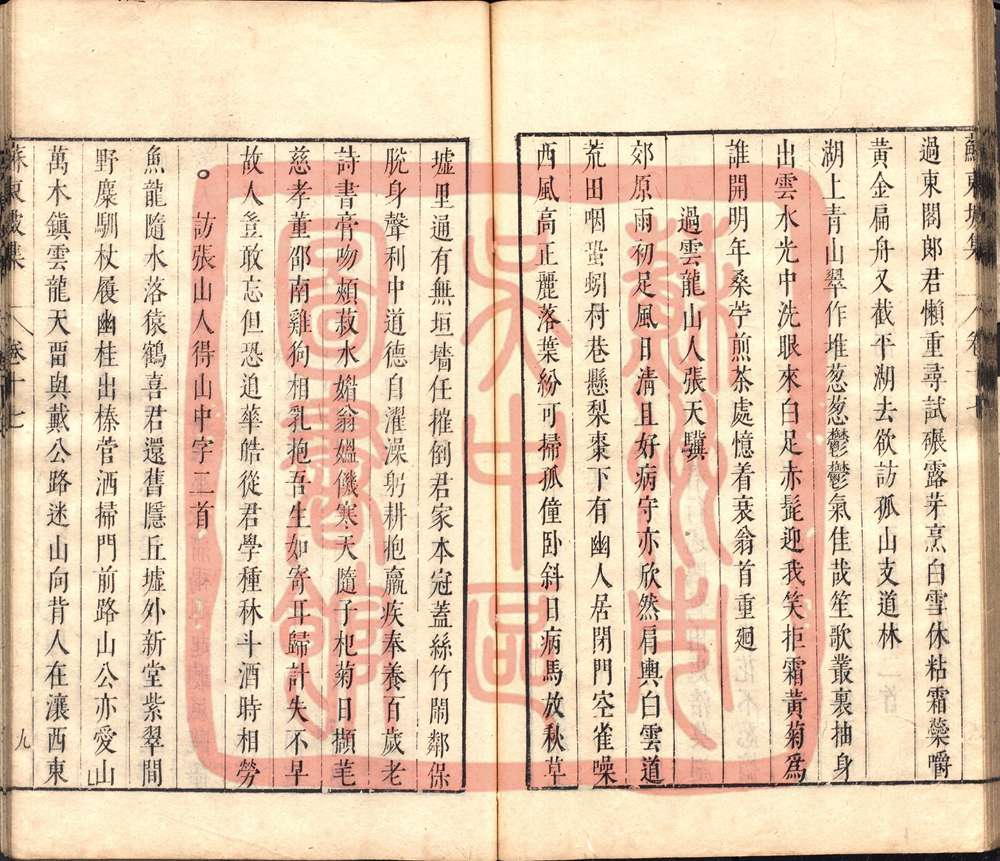 蘇東坡集 卷十七
過東閣郎君懶重尋試碾露芽烹白雪休粘霜蘂嚼
黃金扁舟又截平湖去欲訪孤山支道林
湖上青山翠作堆葱葱鬱鬱氣佳哉笙歌叢裏抽身
出雲水光中洗眼來白足赤髭迎我笑拒霜黃菊為
誰開明年桑苧煎茶處憶着衰翁首重廻
過雲龍山人張天驥
郊原雨初足風日清且好病守亦欣然肩輿白雲道
荒田咽蛩蚓村巷懸梨棗下有幽人居閉門空雀噪
西風高正麗落葉紛可掃孤僮卧斜日病馬放秋草
墟里通有無垣墻任摧倒君家本冠蓋絲竹鬧鄰保
脫身聲利中道德自濯澡躬耕抱羸疾奉養百歲老
詩書膏吻頰菽水媚翁媼饑寒天隨子杞菊日擷芼
慈孝董邵南雞狗相乳抱吾生如寄耳歸計失不早
故人豈敢忘但恐迫華皓從君學種秫斗酒時相勞
訪張山人得山中字二首
魚龍隨水落猿鶴喜君還舊隱丘墟外新堂紫翠間
野麋馴杖屨幽桂出榛菅洒掃門前路山公亦愛山
萬木鎮雲龍天畱與戴公路迷山向背人在瀼西東
蘇東坡集 卷十七 九
蘇州市
吳中區
圖書館